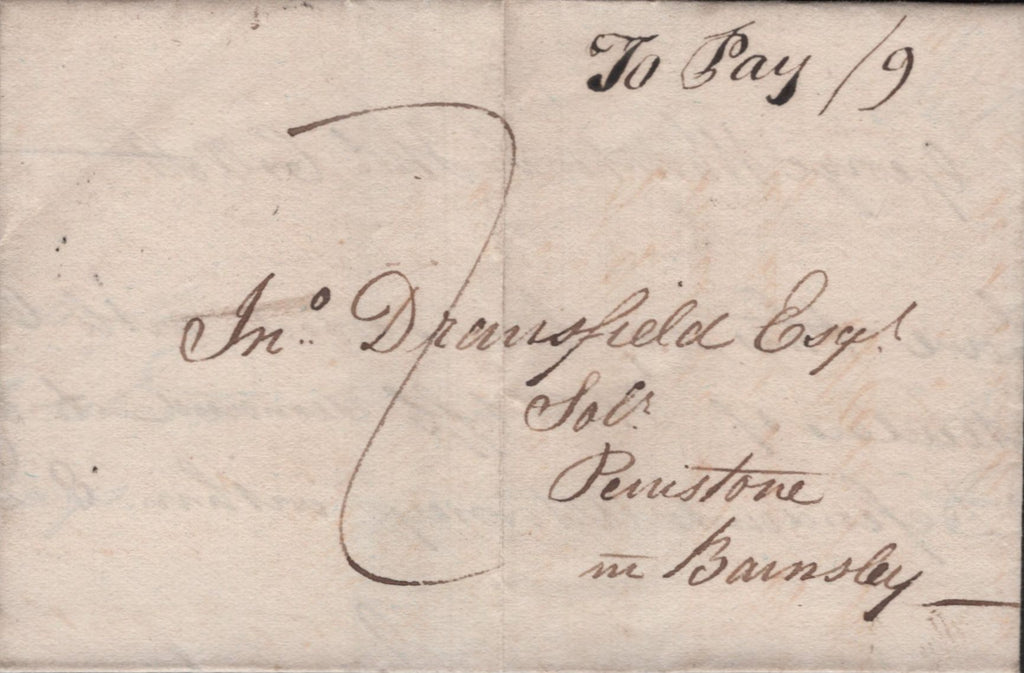 To Pay /9
7
Jnº Dransfield Esqr
Solr
Penistone
nr Barnsley